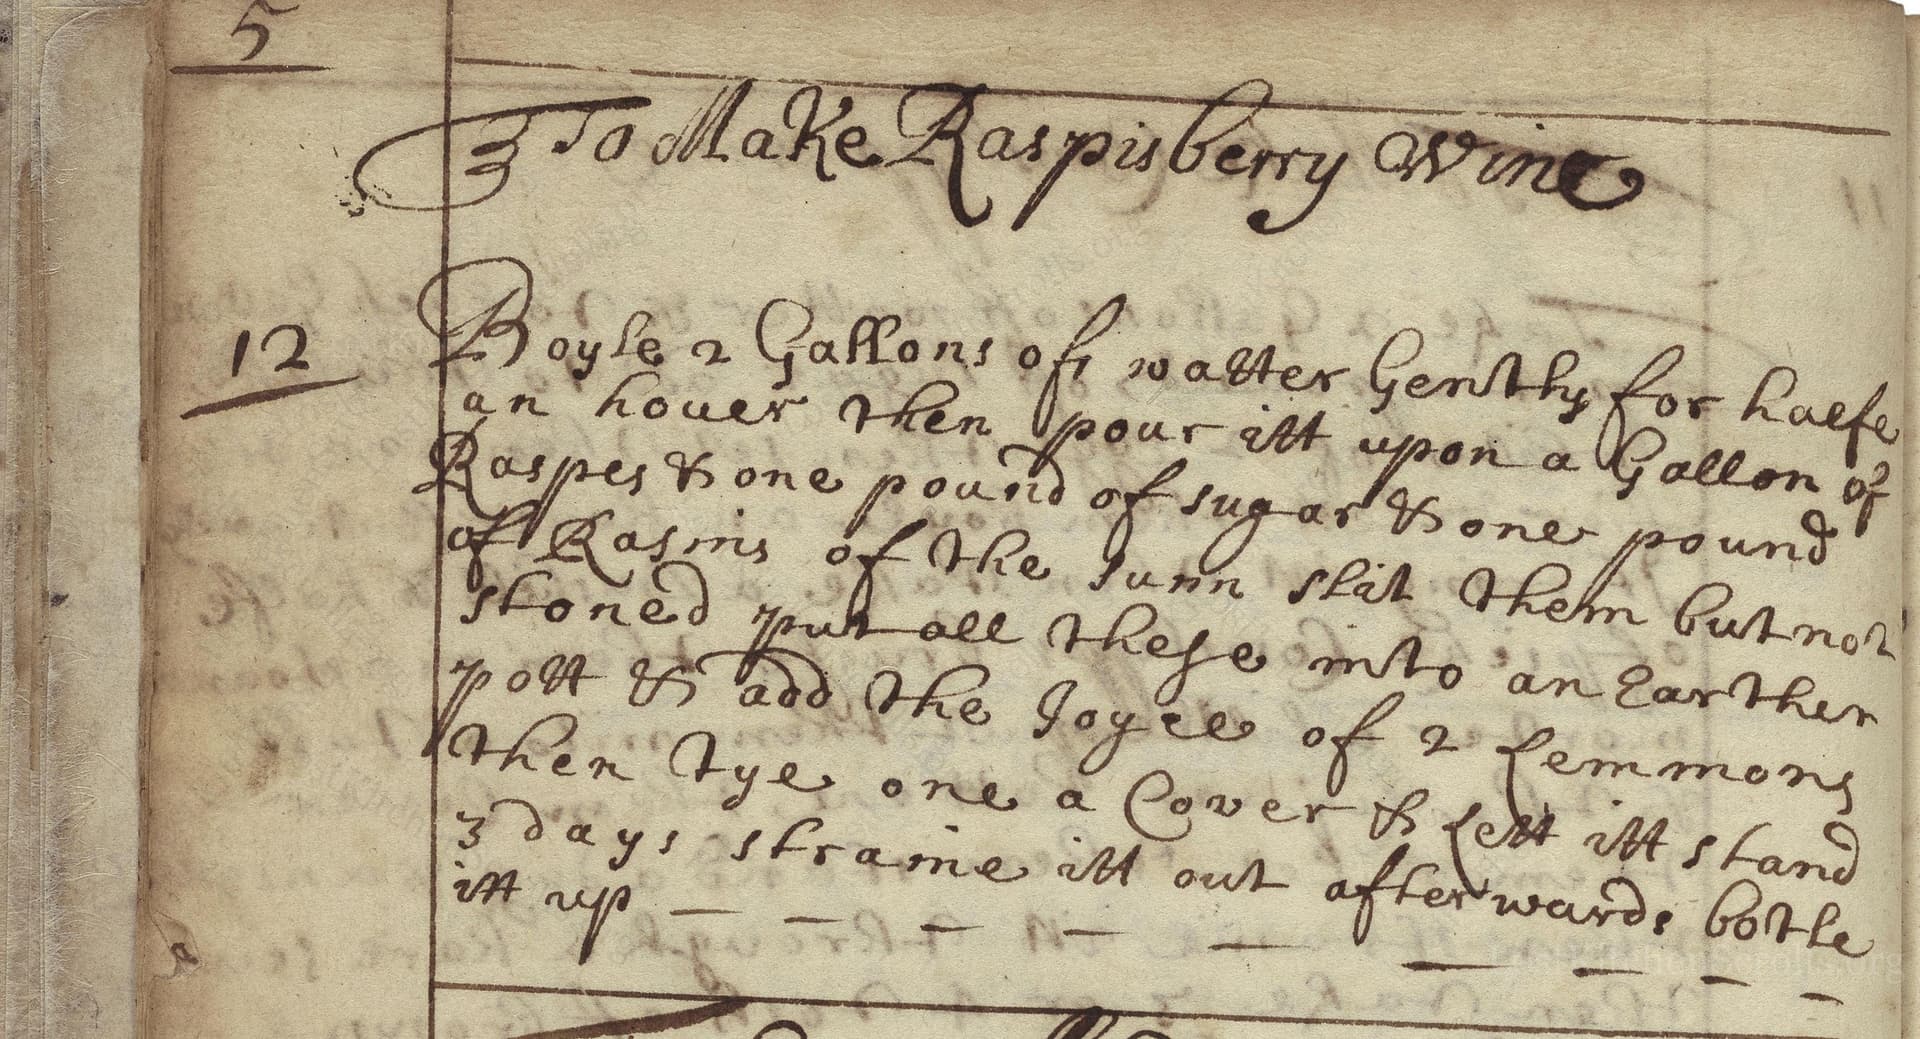 5
To Make Raspisberry Wine
12
Boyle 2 Gallons of watter Gently for halfe
an houer then pour itt upon a Gallon of
Raspes & one pound of sugar & one pound
of Rasins of the sunn slit them but not
stoned put all these into an Earthen
pott & add the Joyce of 2 Lemmons
then tye one a Cover & Lett itt stand
3 days straine itt out afterwards botle
itt up